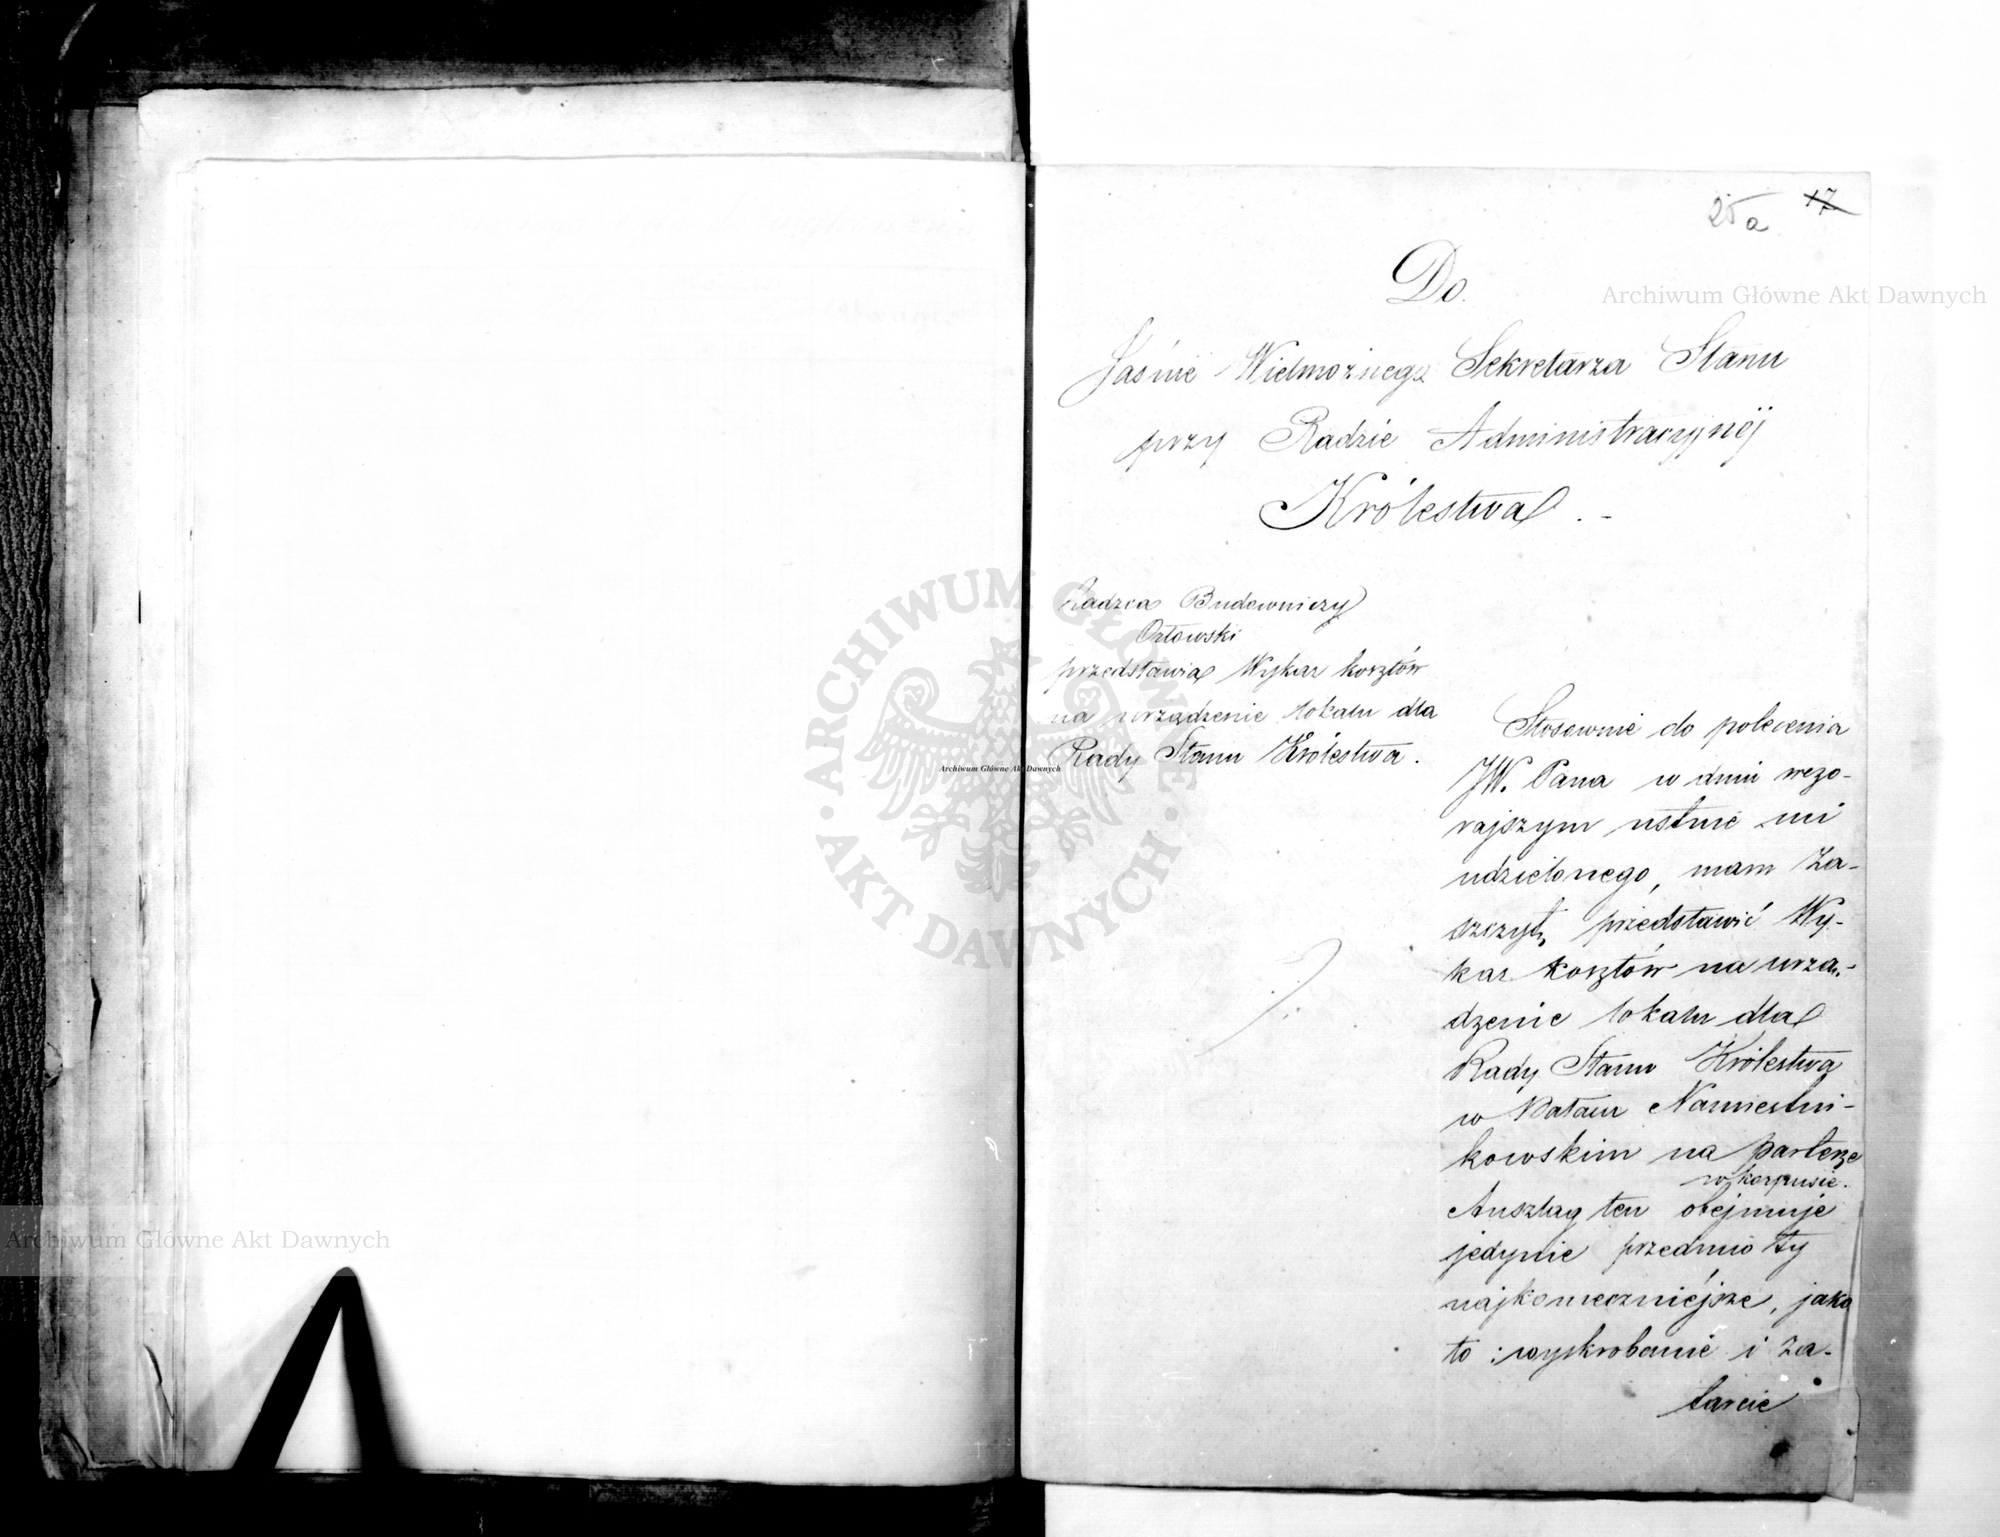 25a 17
Do.
Jaśnie Wielmożnego Sekretarza Stanu
przy Radzie Administracyjnéj
Królestwa . -
Radzca Budowniczy
Orłowski
przedstawia Wykaz kosztów
na urządzenie lokalu dla
Rady Stanu Królestwa .
Stosownie do polecenia
JW. Pana w dniu wczo-
rajszym ustnie mi
udzielonego, mam Za-
szczyt, przedstawić Wy-
kaz kosztów na urzą-
dzenie lokalu dla
Rady Stanu Królestwa
w Pałacu Namiestni-
kowskim na parterze
w korpusie.
Anszlag ten obejmuje
jedynie przedmioty
najkonieczniéjsze, jako
to : wyskrobanie i za-
tarcie
Archiwum Główne Akt Dawnych
Archiwum Główne Akt Dawnych
Archiwum Główne Akt Dawnych
ARCHIWUM GŁÓWNE · AKT DAWNYCH ·